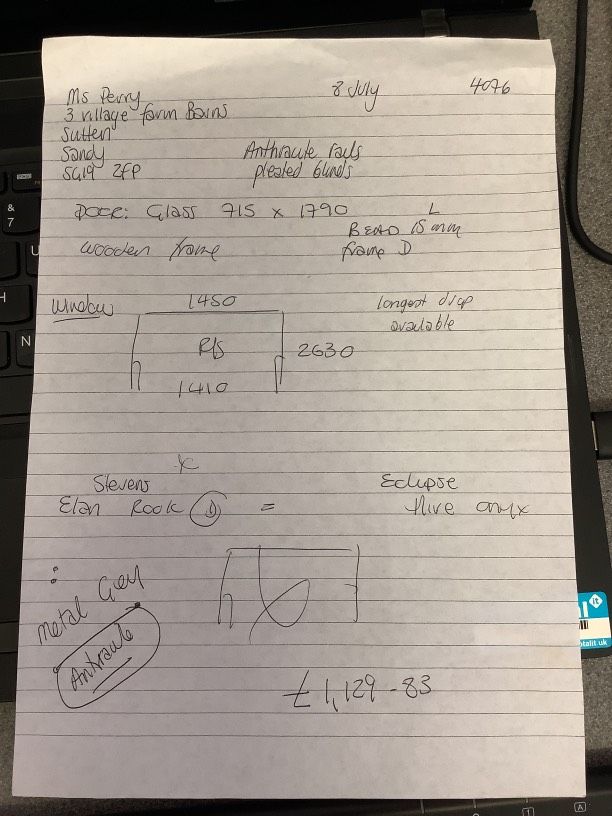 Ms Perry 8 July 4076
3 village farm Barns
Sutton
Sandy Anthracite rails
SG19 2FP pleated blinds
DOOR: Glass 715 x 1790 L
BEAD 15 mm
wooden frame frame D
Window 1450 longest drop
available
R/S 2630
1410
Stevens Eclipse
Elan Rook D = Hive onyx
:
Metal Grey
Anthracite
£1,129-83
it
talit.uk
&
7
U
H
N
A